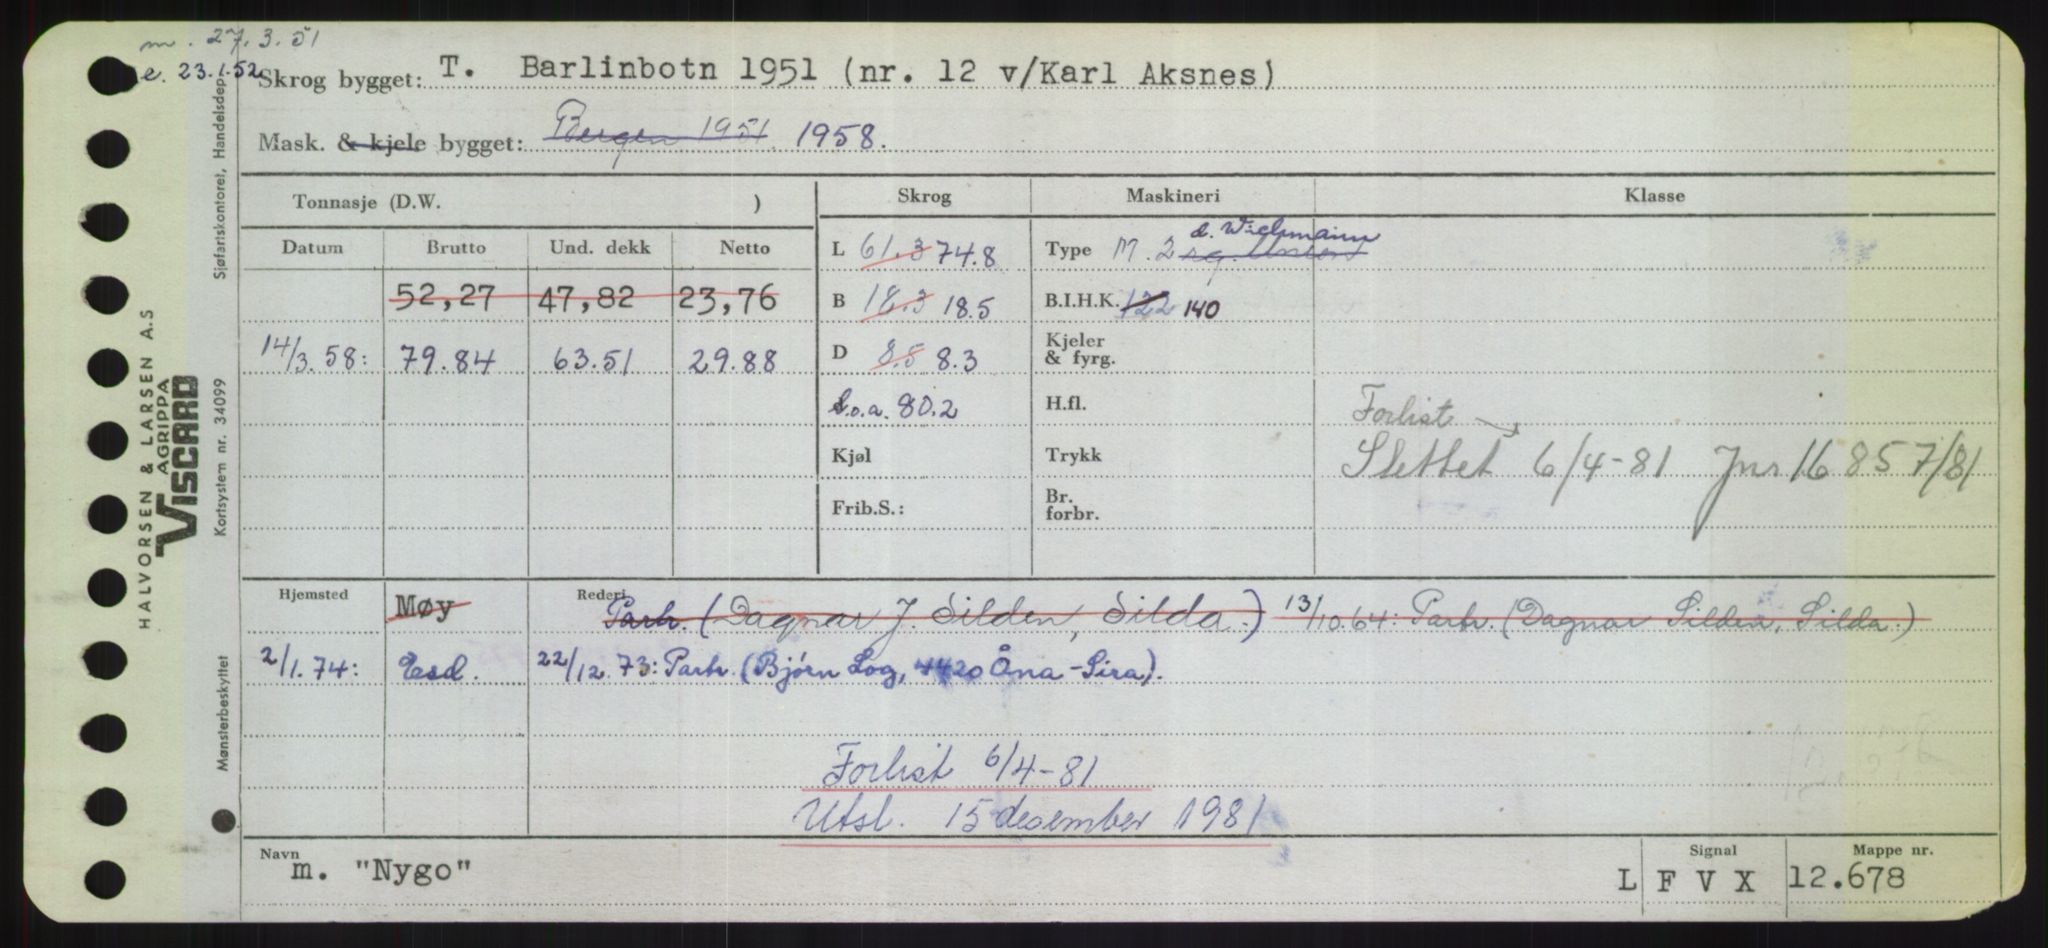 m. 27.3.51
e. 23.1.52
Skrog bygget: T. Barlinbotn 1951 (nr. 12 v/Karl Aksnes)
Mask. & kjele bygget: Bergen 1951. 1958.
Tonnasje (D.W. ) Skrog Maskineri Klasse
Datum Brutto Und. dekk Netto L 61.3 74.8 Type M. 2 d. Wichmann
52,27 47,82 23,76 B 18.3 18.5 B.I.H.K. 122 140
14/3.58: 79.84 63.51 29.88 D 8.5 8.3 Kjeler & fyrg.
L.o.a. 80.2 H.fl. Forlist
Kjøl Trykk Slettet 6/4-81 Jnr 16857/81
Frib.S.: Br. forbr.
Hjemsted Møy Rederi Partr. (Dagnar J. Silden, Silda.) 13/10.64: Partr. (Dagnar Silden, Silda.)
2/1.74: Esd. 22/12.73: Partr. (Bjørn Log, 4420 Åna-Sira).
Forlist 6/4-81
Utsl. 15 desember 1981
Navn m. "Nygo" Signal L F V X Mappe nr. 12.678
HALVORSEN & LARSEN A.S
AGRIPPA
VISCARD
Sjøfartskontoret, Handelsdep.
Kortsystem nr. 34099
Mønsterbeskyttet